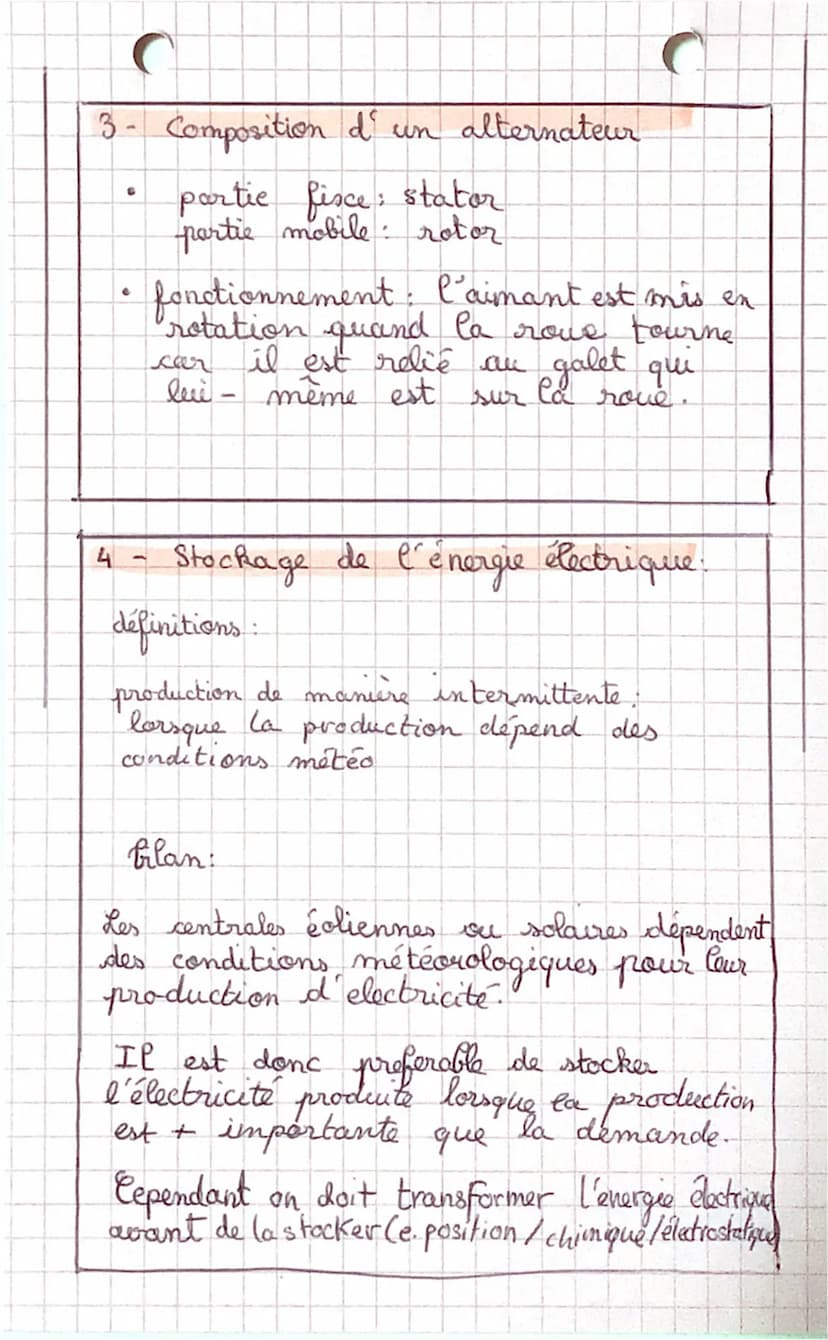 3 - Composition d'un alternateur
• partie fisce : stator
partie mobile : rotor
• fonctionnement : l'aimant est mis en
rotation quand la roue tourne
car il est relié au galet qui
lui - même est sur la roue.
4 - Stockage de l'énergie électrique :
définitions :
production de manière intermittente :
lorsque la production dépend des
conditions météo
bilan :
Les centrales éoliennes ou solaires dépendent
des conditions météorologiques pour leur
production d'electricité.
Il est donc preferable de stocker
l'électricité produite lorsque la production
est + importante que la demande.
Cependant on doit transformer l'énergie électrique
avant de la stocker (e. position / chimique / électrostatique)